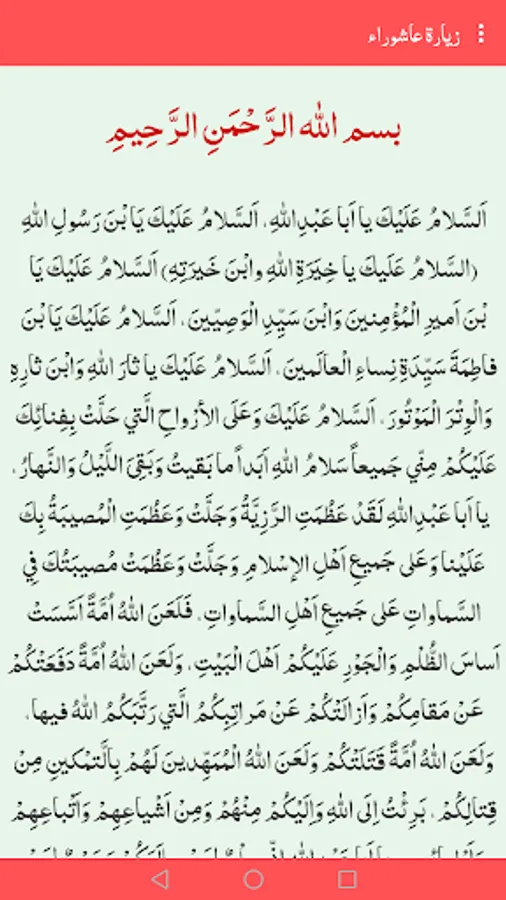 زيارة عاشوراء
بسم الله الرَّحْمَنِ الرَّحِيمِ
اَلسَّلامُ عَلَيْكَ يا اَبا عَبْدِاللهِ، اَلسَّلامُ عَلَيْكَ يَا بْنَ رَسُولِ اللهِ
(السَّلامُ عَلَيكَ يا خِيَرَةِ اللهِ وابْنَ خَيرَتِهِ) اَلسَّلامُ عَلَيْكَ يَا
بْنَ اَميرِ الْمُؤْمِنينَ وَابْنَ سَيِّدِ الْوَصِيّينَ، اَلسَّلامُ عَلَيْكَ يَا بْنَ
فاطِمَةَ سَيِّدَةِ نِساءِ الْعالَمينَ، اَلسَّلامُ عَلَيْكَ يا ثارَ اللهِ وَابْنَ ثارِهِ
وَالْوِتْرَ الْمَوْتُورَ، اَلسَّلامُ عَلَيْكَ وَعَلَى الأرْواحِ الَّتي حَلَّتْ بِفِنائِكَ
عَلَيْكُمْ مِنّي جَميعاً سَلامُ اللهِ اَبَداً ما بَقيتُ وَبَقِيَ اللَّيْلُ وَالنَّهارُ،
يا اَبا عَبْدِاللهِ لَقَدْ عَظُمَتِ الرَّزِيَّةُ وَجَلَّتْ وَعَظُمَتِ الْمُصيبَةُ بِكَ
عَلَيْنا وَعَلى جَميعِ اَهْلِ الإسْلامِ وَجَلَّتْ وَعَظُمَتْ مُصيبَتُكَ فِي
السَّماواتِ عَلى جَميعِ اَهْلِ السَّماواتِ، فَلَعَنَ اللهُ اُمَّةً اَسَّسَتْ
اَساسَ الظُّلْمِ وَالْجَوْرِ عَلَيْكُمْ اَهْلَ الْبَيْتِ، وَلَعَنَ اللهُ اُمَّةً دَفَعَتْكُمْ
عَنْ مَقامِكُمْ وَاَزالَتْكُمْ عَنْ مَراتِبِكُمُ الَّتي رَتَّبَكُمُ اللهُ فيها،
وَلَعَنَ اللهُ اُمَّةً قَتَلَتْكُمْ وَلَعَنَ اللهُ الْمُمَهِّدينَ لَهُمْ بِالَّتمْكينِ مِنْ
قِتالِكُمْ، بَرِئْتُ اِلَى اللهِ وَاِلَيْكُمْ مِنْهُمْ وَمِنْ اَشْياعِهِمْ وَاَتْباعِهِمْ